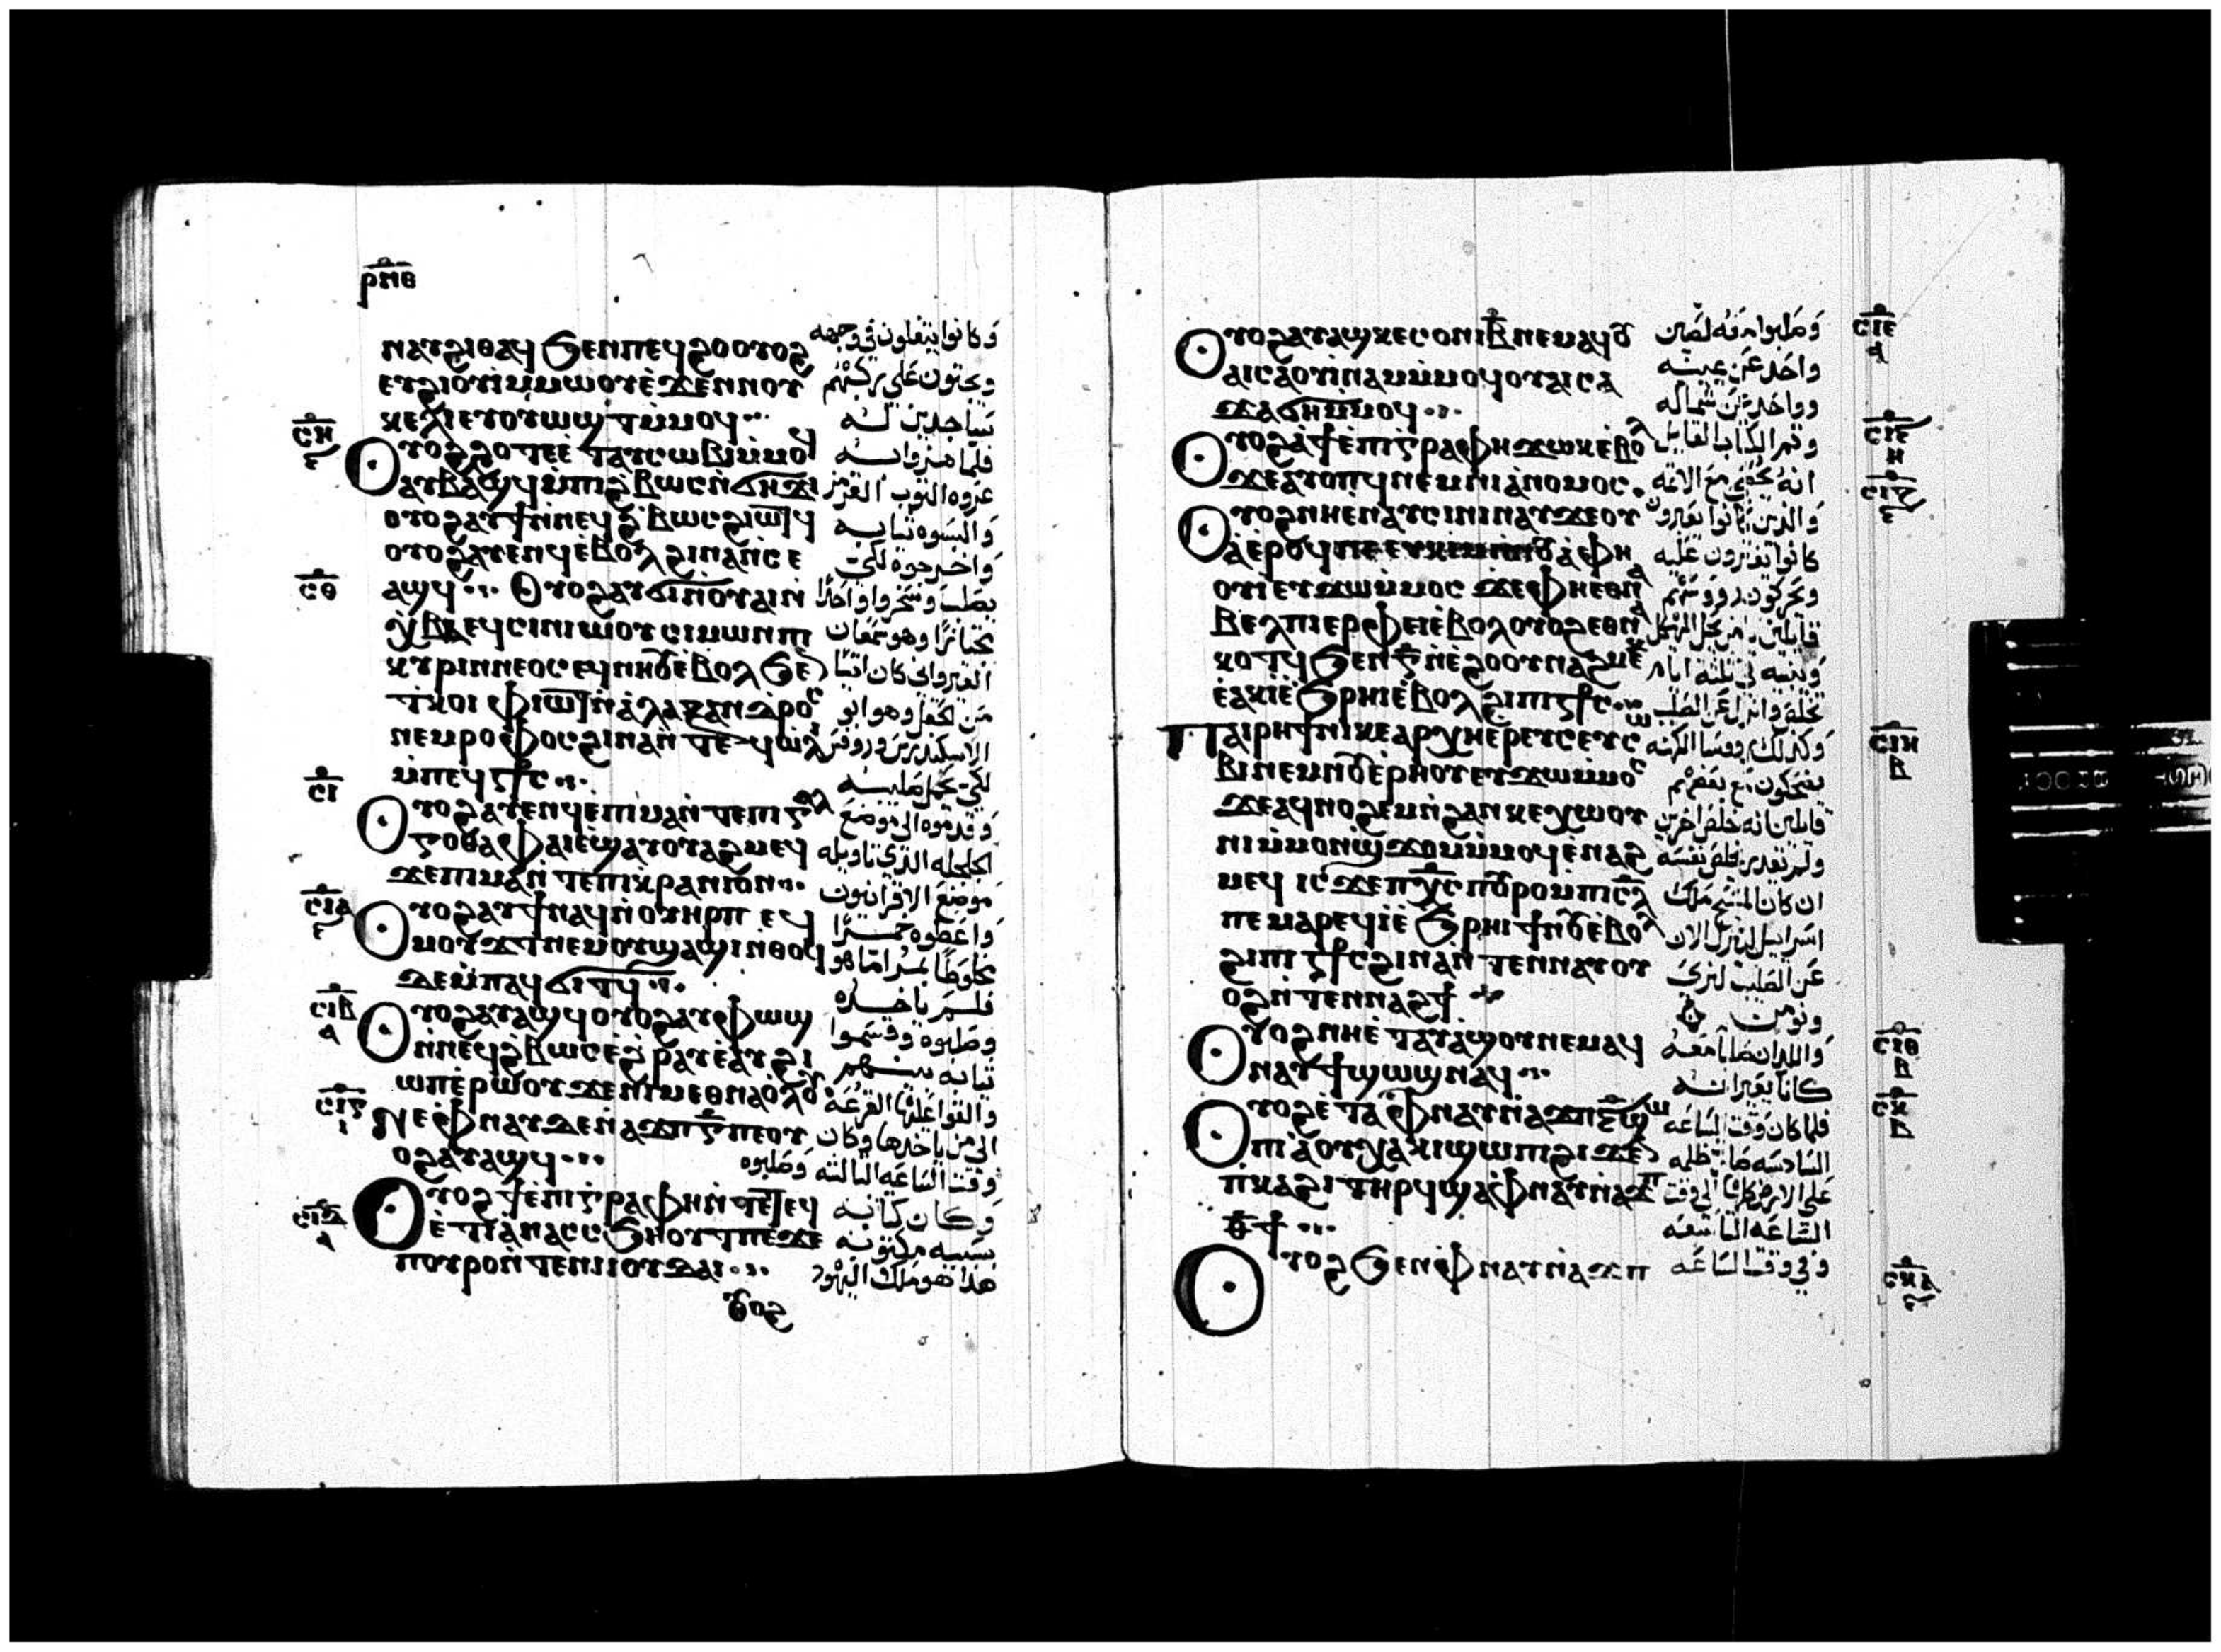 ⲣⲛⲑ
ⲛⲁⲩϩⲓⲑⲁϥ ϧⲉⲛⲡⲉϥϩⲟ ⲟⲩⲟϩ
ⲉⲩϩⲓⲟⲩⲓ̀ⲙ̀ⲙⲱⲟⲩⲉ̀ϫⲉⲛⲛⲟⲩ
ⲕⲉⲗⲓ ⲉⲩⲟⲩⲱϣⲧ ⲙ̀ⲙⲟϥ
ⲥⲏ
ⲟⲩⲟϩ ϩⲟⲧⲉ ⲉ̀ⲧⲁⲩⲥⲱⲃⲓ ⲙ̀ⲙⲟϥ
ⲁⲩⲃⲁϣϥ ⲙ̀ⲡⲓϩ̀ⲃⲱⲥ ⲛ̀ϭⲏϫⲓ
ⲟⲩⲟϩ ⲁⲩϯ ⲛ̀ⲛⲉϥϩ̀ⲃⲱⲥ ϩⲓⲱⲧϥ
ⲟⲩⲟϩ ⲁⲩⲉⲛϥ ⲉ̀ⲃⲟⲗ ϩⲓⲛⲁ ⲛ̀ⲥⲉ
ⲥⲑ
ⲁϣϥ ⲟⲩⲟϩ ⲁⲩϭⲓ ⲛ̀ⲟⲩⲁⲓ ⲛ̀
ⲭⲃⲁ ⲉϥⲥⲓⲛⲓⲱⲟⲩ ⲥⲓⲙⲱⲛ ⲡⲓ
ⲕⲩⲣⲓⲛⲛⲉⲟⲥ ⲉϥⲛⲏⲟⲩ ⲉ̀ⲃⲟⲗ ϧⲉⲛ
ⲧ̀ⲕⲟⲓ ⲫ̀ⲓⲱⲧ ⲛ̀ⲁ̀ⲗⲉⲝⲁⲛⲇⲣⲟⲥ
ⲛⲉⲙ ⲣⲟⲩⲫⲟⲥ ϩⲓⲛⲁ ⲛ̀ⲧⲉϥⲱⲗⲓ
ⲙ̀ⲡⲉϥⲥϯⲥ
ⲥⲓ
ⲟⲩⲟϩ ⲁⲩⲉⲛϥ ⲉ̀ⲡⲓⲙⲁ ⲛ̀ⲧⲉ ⲡⲓⲅⲟⲗ
ⲅⲟⲑⲁ ⲫⲁⲓ ⲉ̀ϣⲁⲩⲟⲩⲁϩⲙⲉϥ
ϫⲉ ⲡⲓⲙⲁ ⲛ̀ⲧⲉ ⲡⲓⲕⲣⲁⲛⲓⲟⲛ
ⲥⲓⲁ
ⲟⲩⲟϩ ⲁⲩϯ ⲛⲁϥ ⲛ̀ⲟⲩⲏⲣⲡ ⲉϥ
ⲙⲟⲩϫⲧ ⲛⲉⲙ ⲟⲩϣⲁϣⲓ ⲛ̀ⲑⲟϥ
ⲇⲉ ⲙ̀ⲡⲁϥϭⲓⲧϥ
ⲥⲓⲃ
ⲟⲩⲟϩ ⲁⲩⲁϣϥ ⲟⲩⲟϩ ⲁⲩⲫⲱϣ
ⲛ̀ⲛⲉϥϩ̀ⲃⲱⲥ ⲉ̀ϩ̀ⲣⲁⲩ ⲉ̀ⲁⲩϩⲓ
ⲱⲡ ⲉ̀ⲣⲱⲟⲩ ϫⲉ ⲛⲓⲙ ⲉⲑⲛⲁⲟ̀ⲗⲟⲩ
ⲥⲓⲅ
ⲛⲉ ⲫ̀ⲛⲁⲩ ⲇⲉ ⲛ̀ⲁϫⲡ ⲅ̄ ⲡⲉ ⲟⲩ
ⲟϩ ⲁⲩⲁϣϥ
ⲥⲓⲇ
ⲟⲩⲟϩ ϯⲉ̀ⲡⲓⲅⲣⲁⲫⲏ ⲛ̀ⲧⲉ ⲧⲉϥ
ⲉ̀ⲧⲓⲁ̀ ⲛⲁⲥⲥϧⲏⲟⲩⲧ ⲡⲉ ϫⲉ
ⲡⲟⲩⲣⲟ ⲛ̀ⲧⲉ ⲛⲓⲓⲟⲩⲇⲁⲓ
ⲟⲩⲟϩ
وكانوا يتفلون في وجهه
ويجثون على ركبهم
ساجدين له
فلما هزوا به
عروه الثوب القرمز
والبسوه ثيابه
واخرجوه لكي
يصلب وسخروا واحدًا
مجتازًا وهو سمعان
القيرواني كان اتيًا
من الحقل وهو ابو
الاسكندرس وروفس
لكي يحمل صليبه
وقدموه الى موضع
الجلجله الذي تاويله
موضع الاقرانيون
واعطوه خمرًا
مخلوطًا بمر اما هو
فلم ياخذه
وصلبوه وقسموا
ثيابه بينهم
والقوا عليها القرعه
الى من ياخذها وكان
وقت الساعه الثالثه وصلبوه
وكان كتابه
سببه مكتوبه
هذا هو ملك اليهود
ⲥⲓⲉ
ⲟⲩⲟϩ ⲁⲩⲁϣ ⲕⲉⲥⲟⲛⲓ ⲃ̄ ⲛⲉⲙⲁϥ ⲟⲩ
ⲁⲓ ⲥⲁⲟⲩⲓ̀ⲛⲁⲙ ⲙ̀ⲙⲟϥ ⲟⲩⲁⲓ ⲥⲁ
ϫⲁϭⲏ ⲙ̀ⲙⲟϥ
ⲟⲩⲟϩ ⲁ̀ ϯⲉ̀ⲡⲓⲅⲣⲁⲫⲏ ϫⲱⲕ ⲉ̀ⲃⲟⲗ
ϫⲉ ⲁⲩⲟⲡϥ ⲛⲉⲙ ⲛⲓⲁ̀ⲛⲟⲙⲟⲥ
ⲟⲩⲟϩ ⲛⲏ ⲉ̀ⲛⲁⲩⲥⲓⲛⲓ ⲛⲁⲩϫⲉⲟⲩ
ⲟⲩⲓ ⲉⲩϫⲱ ⲙ̀ⲙⲟⲥ ϫⲉ ⲫⲏ ⲉⲑⲛⲁ
ⲃⲉⲗ ⲡⲓⲉⲣⲫⲉⲓ ⲉ̀ⲃⲟⲗ ⲟⲩⲟϩ ⲉⲑⲛⲁ
ⲕⲟⲧϥ ϧⲉⲛ ⲅ̄ ⲛ̀ⲉ̀ϩⲟⲟⲩ ⲛⲁϩⲙⲉⲕ
ⲉ̀ⲁⲕⲓ̀ ⲉ̀ϧⲣⲏⲓ ⲉ̀ⲃⲟⲗ ϩⲓ ⲡⲓⲥϯⲥ
ⲥⲓⲏ
ⲡⲁⲓⲣⲏϯ ⲛⲓⲕⲉⲁⲣⲭⲏⲉ̀ⲣⲉⲩⲥ ⲉⲩⲥⲱ
ⲃⲓ ⲛⲉⲙ ⲛⲟⲩⲉ̀ⲣⲏⲟⲩ ⲉⲩϫⲱ ⲙ̀ⲙⲟⲥ
ϫⲉ ⲁϥⲛⲟϩⲉⲙ ⲛ̀ϩⲁⲛⲕⲉⲭⲱⲟⲩ
ⲛⲓ ⲙ̀ⲙⲟⲛ ϣ̀ϫⲟⲙ ⲙ̀ⲙⲟϥ ⲉ̀ⲛⲁϩ
ⲙⲉϥ ⲓⲥϫⲉ ⲡⲭ̄ⲥ ⲡⲟⲩⲣⲟ ⲙ̀ⲡⲓⲥ̄ⲗ
ⲡⲉ ⲙⲁⲣⲉϥⲓ̀ ⲉ̀ϧⲣⲏⲓ ϯⲛⲟⲩ ⲉ̀ⲃⲟⲗ
ϩⲓ ⲡⲓⲥϯⲥ ϩⲓⲛⲁ ⲛ̀ⲧⲉⲛⲛⲁⲩ ⲟⲩ
ⲟϩ ⲛ̀ⲧⲉⲛⲛⲁϩϯ
ⲥⲓⲑ
ⲟⲩⲟϩ ⲛⲏ ⲉ̀ⲧⲁⲩⲁ̀ϣⲟⲩ ⲛⲉⲙⲁϥ
ⲛⲁⲩϯϣⲱϣ ⲛⲁϥ
ⲥⲕ
ⲟⲩⲟϩ ⲉ̀ⲧⲁ ⲫ̀ⲛⲁⲩ ⲛ̀ⲁϫⲡ ⲋ̄ ϣⲱ
ⲡⲓ ⲁ̀ ⲟⲩⲭⲁⲕⲓ ϣⲱⲡⲓ ϩⲓϫⲉⲛ
ⲡ̀ⲕⲁϩⲓ ⲧⲏⲣϥ ϣⲁ ⲫ̀ⲛⲁⲩ ⲛ̀ⲁϫⲡ
ⲑ̄ϯ
ⲥⲕⲁ
ⲟⲩⲟϩ ϧⲉⲛ ⲫ̀ⲛⲁⲩ ⲛ̀ⲁϫⲡ
وصلبوا معه لصين
واحد عن يمينه
وواحد عن شماله
وتم الكتاب القايل
انه يحصى مع الاثمه
والذين كانوا يعبرون
كانوا يفترون عليه
ويحركون رووسهم
قايلين من يحل الهيكل
ويبنيه في ثلثه ايام
تخلص وانزل عن الصلب
وكذلك روسا الكهنه
يضحكون مع بعضهم
قايلين انه خلص اخرين
ولم يقدر يخلص نفسه
ان كان المسيح ملك
اسرايل لينزل الان
عن الصليب لنرى
ونومن
واللدان صلبا معه
كانا يعيرانه
فلما كان وقت الساعه
السادسه صارت ظلمه
على الارض كلها الى وقت
الساعه التاسعه
وفي وقت الساعه